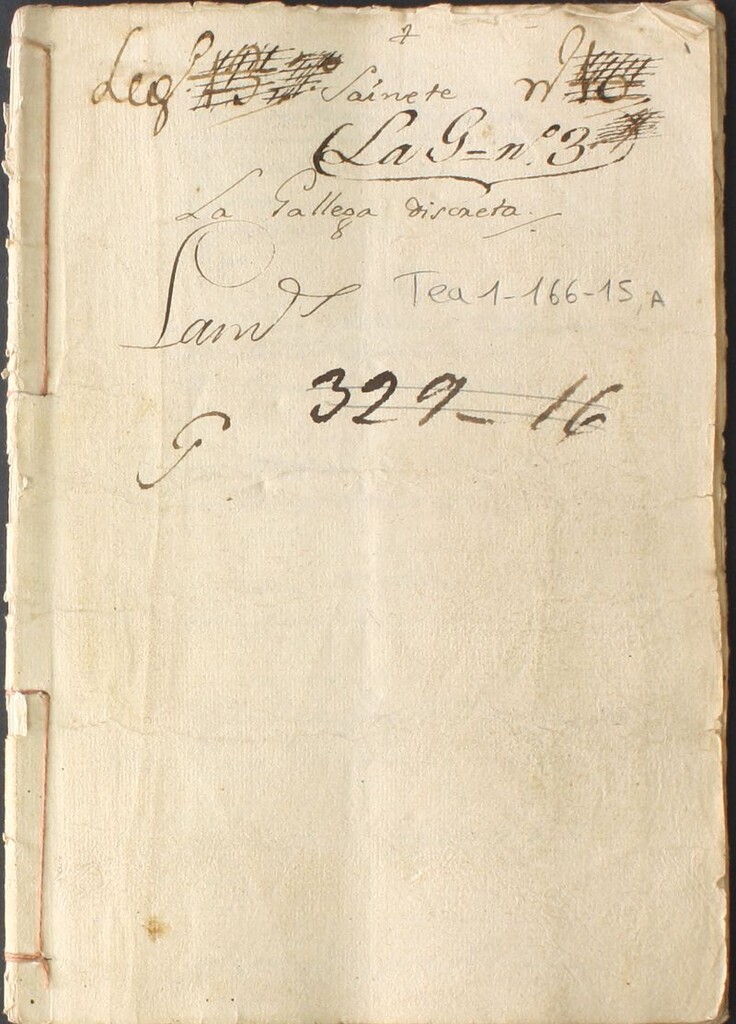 Leg.º Sainete nº
La G-nº3
La Gallega discreta.
Tea 1-166-15, A
329-16